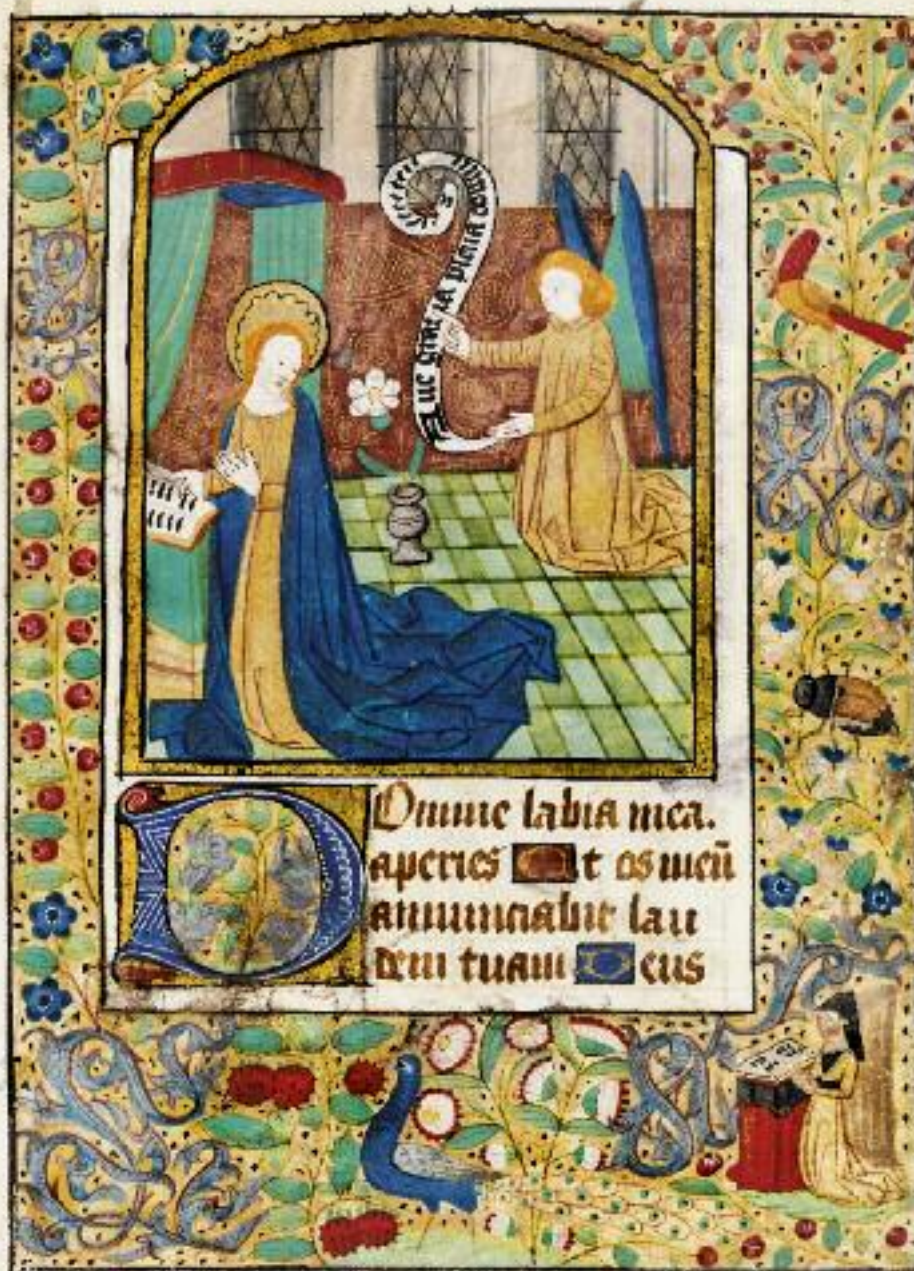 Aue gracia plena dominus tecum
DOmine labia mea.
aperies Et os meū
annunciabit lau
dem tuam Deus